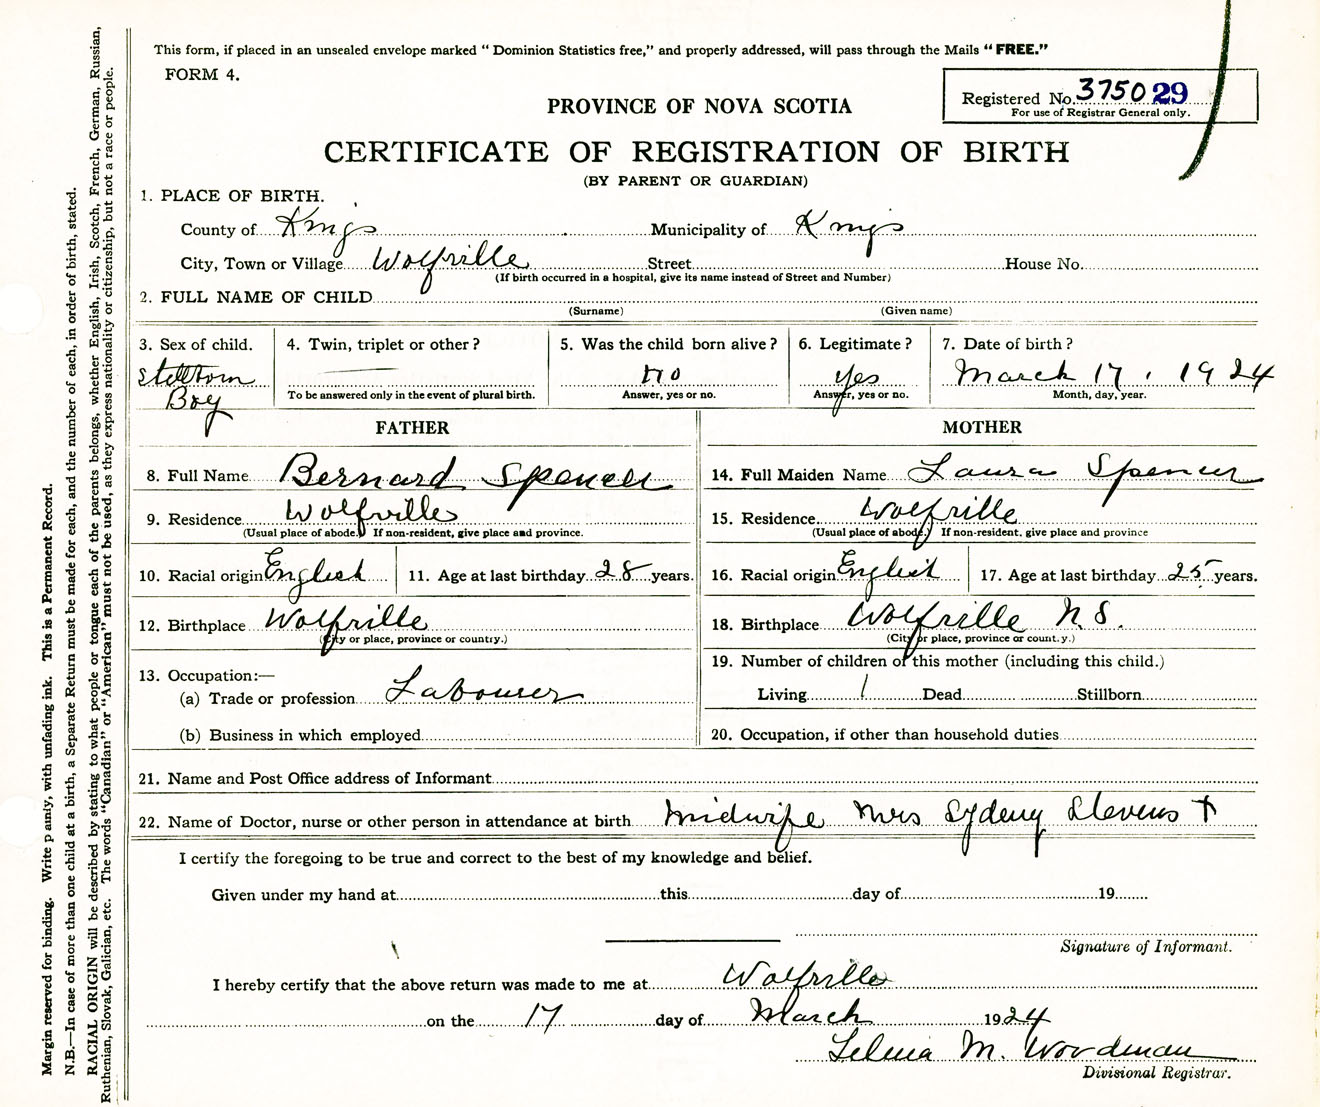 This form, if placed in an unsealed envelope marked " Dominion Statistics free," and properly addressed, will pass through the Mails " FREE."
FORM 4.
Registered No. 3750 29
For use of Registrar General only.
PROVINCE OF NOVA SCOTIA
CERTIFICATE OF REGISTRATION OF BIRTH
(BY PARENT OR GUARDIAN)
1. PLACE OF BIRTH.
County of Kings Municipality of Kings
City, Town or Village Wolfville Street House No.
(If birth occurred in a hospital, give its name instead of Street and Number)
2. FULL NAME OF CHILD
(Surname) (Given name)
3. Sex of child. Stillborn Boy
4. Twin, triplet or other ?
To be answered only in the event of plural birth.
5. Was the child born alive ? no
Answer, yes or no.
6. Legitimate ? yes
Answer, yes or no.
7. Date of birth ? March 17, 1924
Month, day, year.
FATHER
8. Full Name Bernard Spencer
9. Residence Wolfville
(Usual place of abode. If non-resident, give place and province.
10. Racial origin English 11. Age at last birthday 28 years.
12. Birthplace Wolfville
(City or place, province or country.)
13. Occupation:—
(a) Trade or profession Labourer
(b) Business in which employed
MOTHER
14. Full Maiden Name Laura Spencer
15. Residence Wolfville
(Usual place of abode.) If non-resident. give place and province
16. Racial origin English 17. Age at last birthday 25 years.
18. Birthplace Wolfville N.S.
(City or place, province or count.y.)
19. Number of children of this mother (including this child.)
Living 1 Dead Stillborn
20. Occupation, if other than household duties
21. Name and Post Office address of Informant
22. Name of Doctor, nurse or other person in attendance at birth midwife Mrs Sydeny Stevens
I certify the foregoing to be true and correct to the best of my knowledge and belief.
Given under my hand at this day of 19
Signature of Informant.
I hereby certify that the above return was made to me at Wolfville
on the 17 day of March 1924
Selma M. Woodman
Divisional Registrar.
Margin reserved for binding. Write plainly, with unfading ink. This is a Permanent Record.
N.B.—In case of more than one child at a birth, a Separate Return must be made for each, and the number of each, in order of birth, stated.
RACIAL ORIGIN will be described by stating to what people or tongue each of the parents belongs, whether English, Irish, Scotch, French, German, Russian,
Ruthenian, Slovak, Galician, etc. The words "Canadian" or "American" must not be used, as they express nationality or citizenship, but not a race or people.